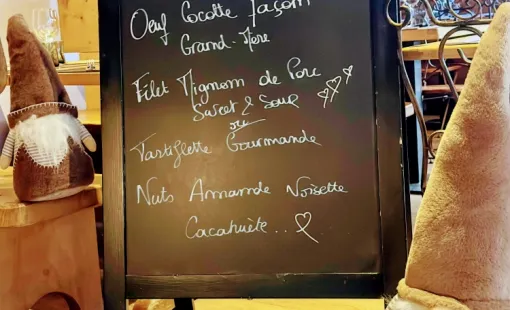 Oeuf Cocotte façon
Grand-Mère
Filet Mignon de Porc
Sweet & Sour
ou
Tartiflette Gourmande
Nuts Amande Noisette
Cacahuète...